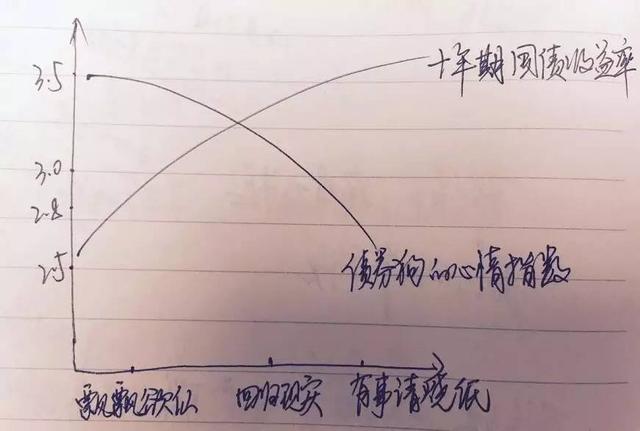 3.5
十年期国债收益率
3.0
2.8
2.5
债券狗的心情指数
飘飘欲仙
回归现实
有事请烧纸